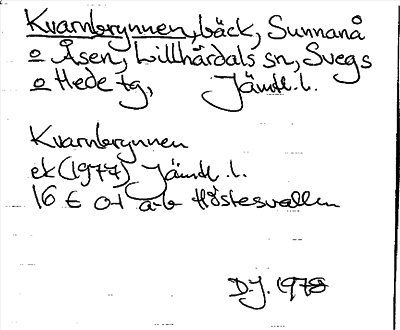 Kvarnbrynnen, bäck, Sunnanå
o Åsen, Lillhärdals sn, Svegs
o Hede tg, Jämtl. l.
Kvarnbrynnen
ek (1977) Jämtl. l.
16 E 0-1 a-b Höstesvallen
D.J. 1978